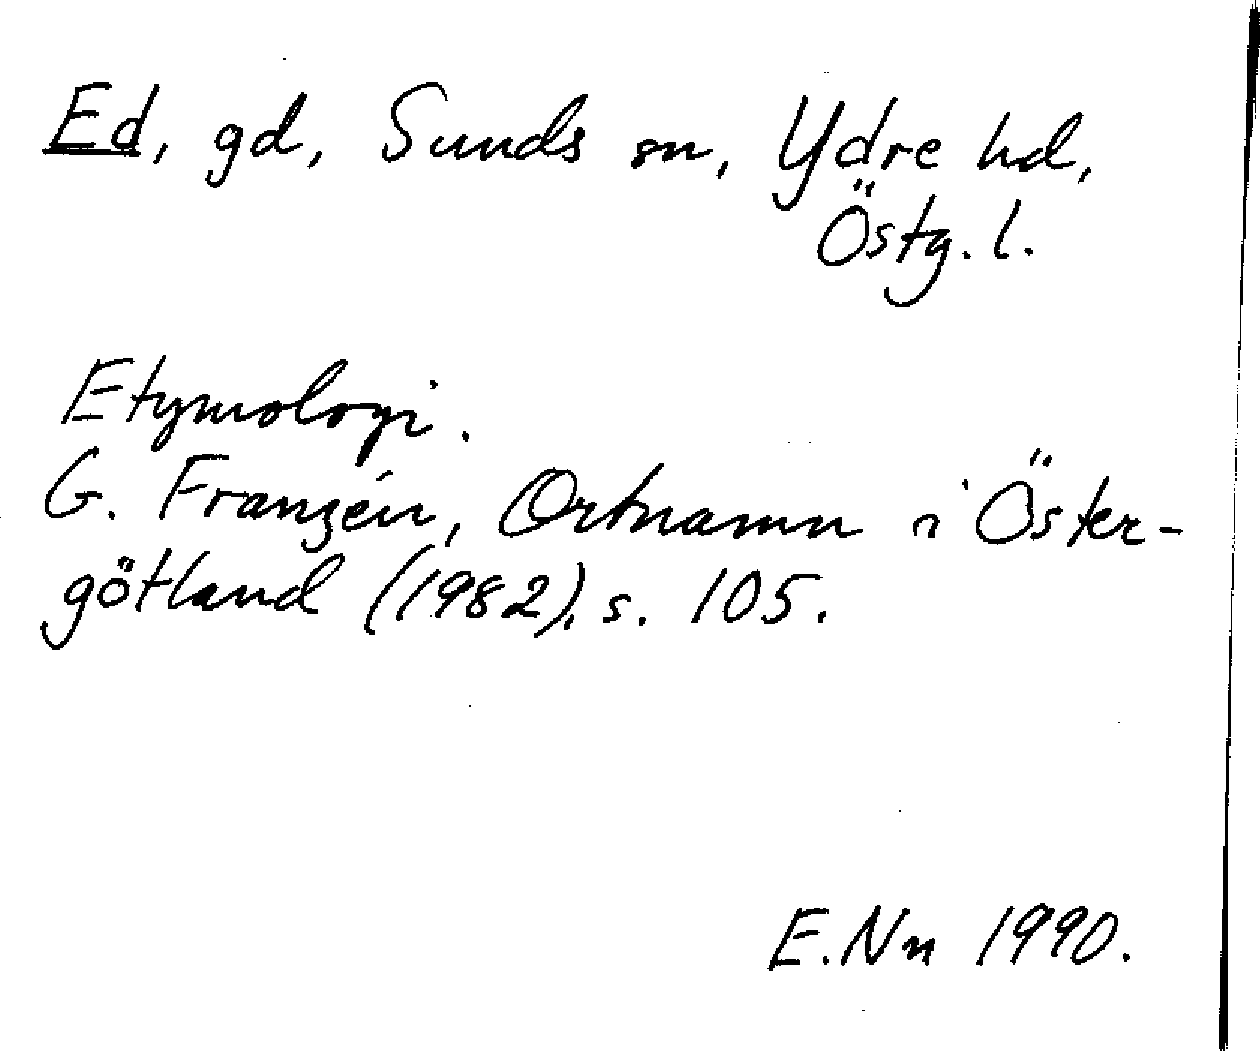 Ed, gd, Sunds sn, Ydre hd,
Östg. l.
Etymologi.
G. Franzén, Ortnamn i Öster-
götland (1982), s. 105.
E. Nn 1990.